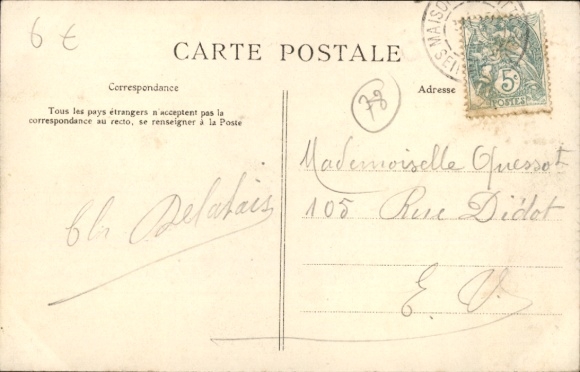 6 €
MAISON
SEINE
5c
POSTES
CARTE POSTALE
Correspondance
Adresse
78
Tous les pays étrangers n'acceptent pas la
correspondance au recto, se renseigner à la Poste
Mademoiselle Quessot
105 Rue Didot
E. V.
Delabais